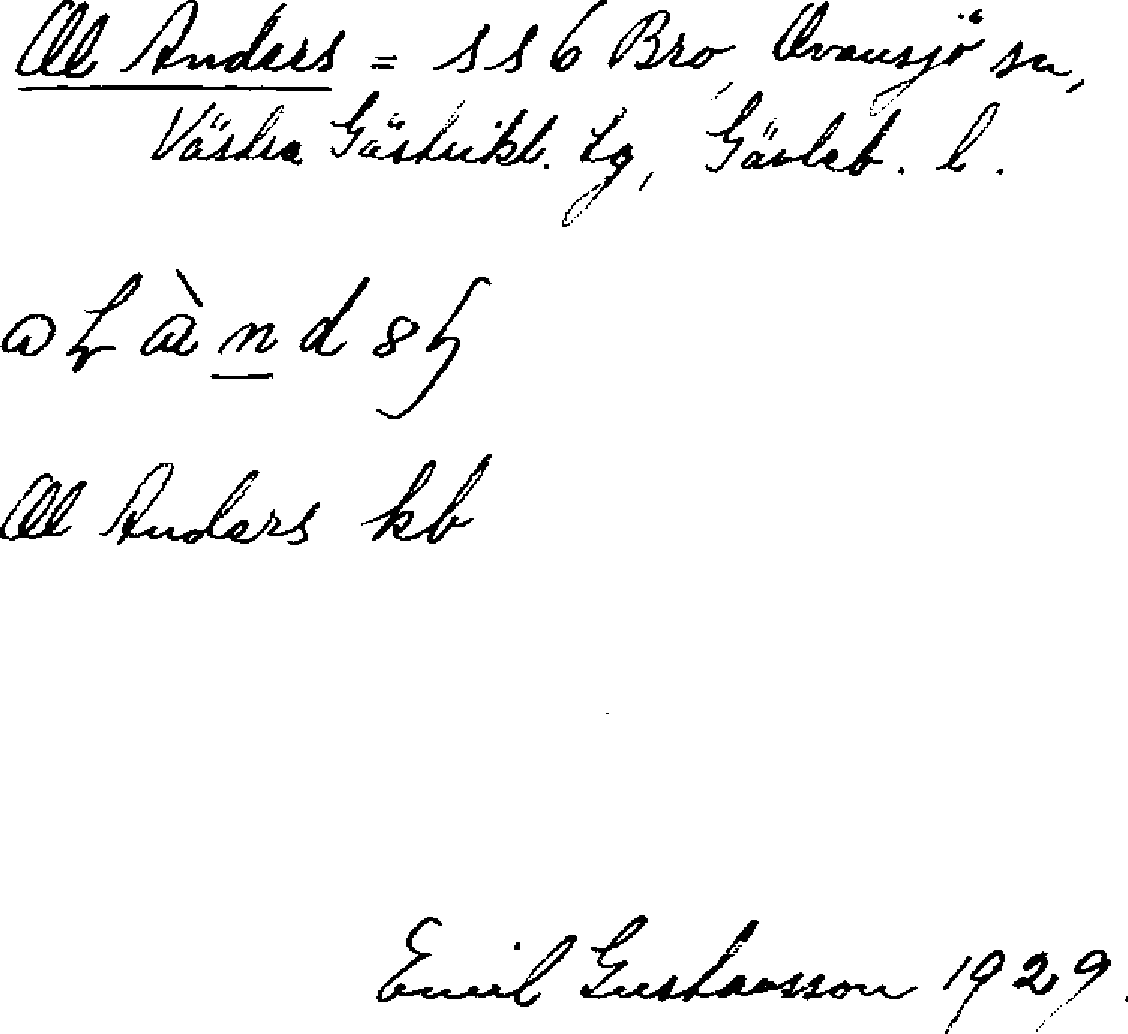 Ol Anders = ss 6 Bro, Ovansjö sn,
Västra Gästrikl. tg, Gävleb. l.
Ol Anders kb
Emil Gustavsson 1929.